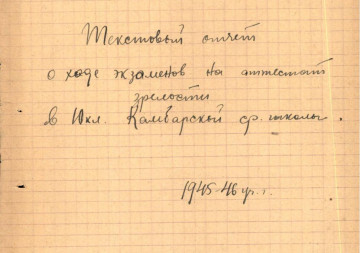 Текстовый отчет
о ходе экзаменов на аттестат
зрелости
в 10 кл. Камбарской ср. школы.
1945-46 уч. г.